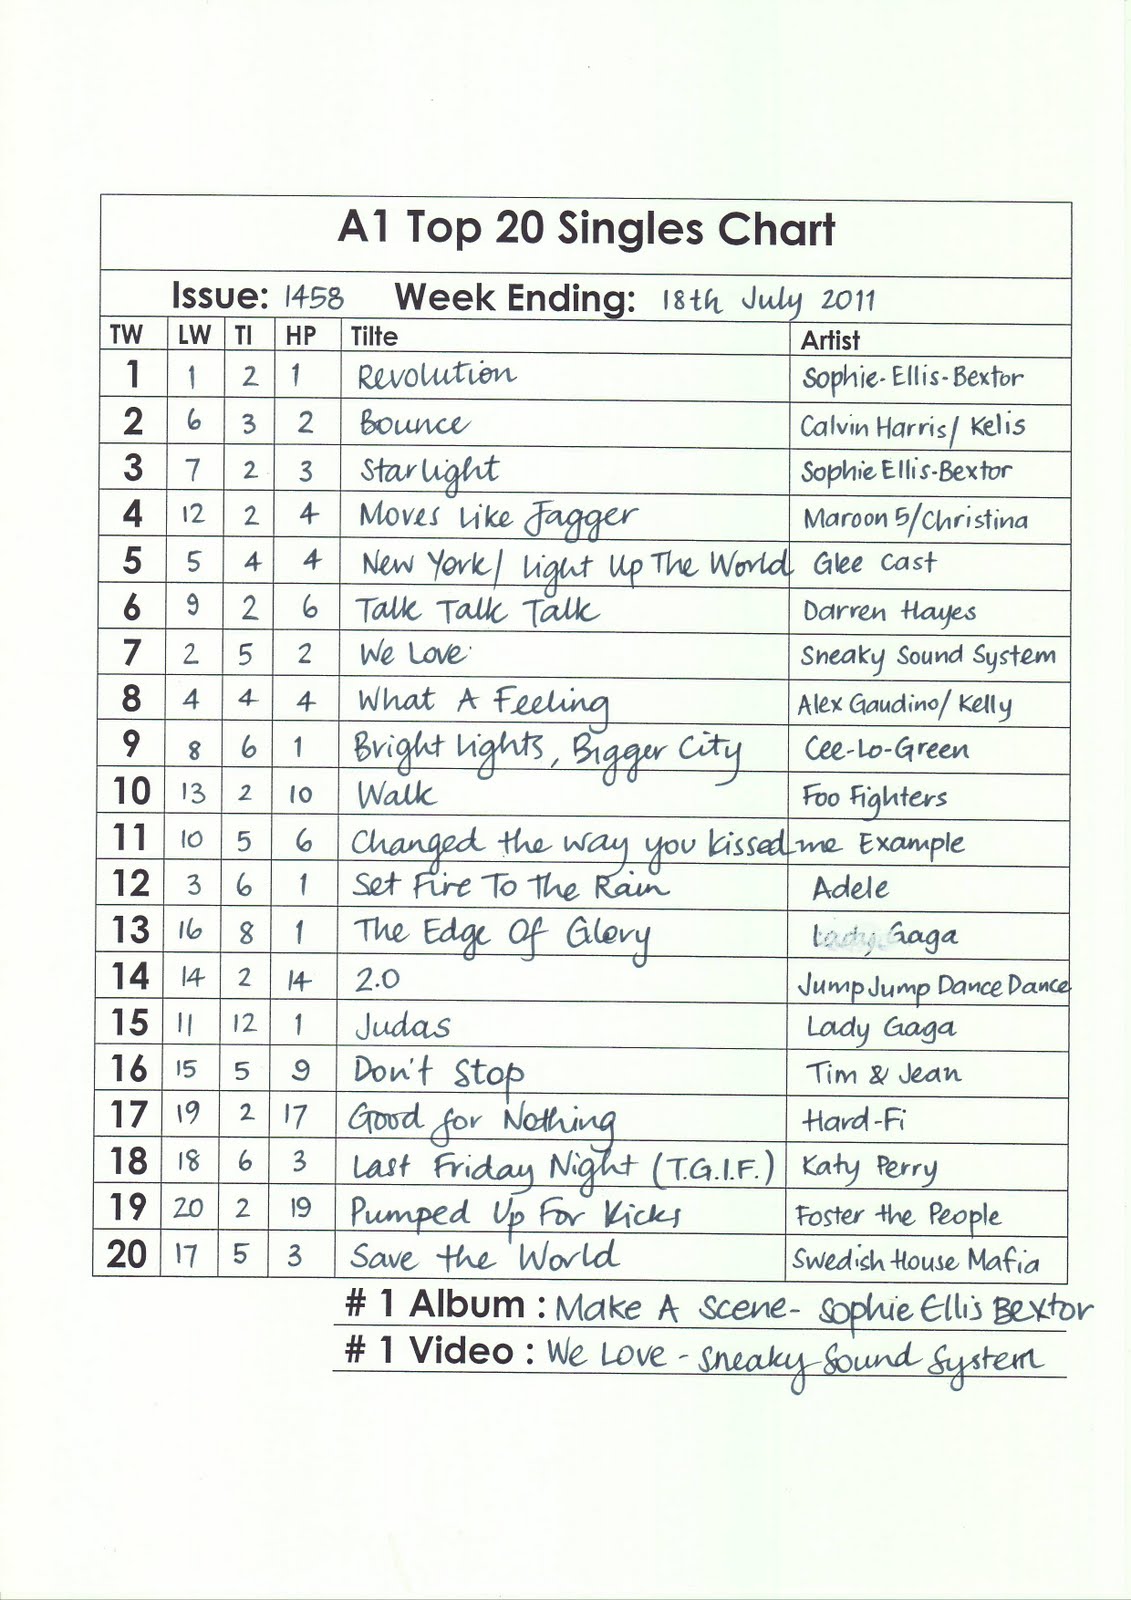 A1 Top 20 Singles Chart
Issue: 1458 Week Ending: 18th July 2011
TW LW TI HP Tilte Artist
1 1 2 1 Revolution Sophie-Ellis-Bextor
2 6 3 2 Bounce Calvin Harris/ Kelis
3 7 2 3 Starlight Sophie Ellis-Bextor
4 12 2 4 Moves Like Jagger Maroon 5/Christina
5 5 4 4 New York/ Light Up The World Glee Cast
6 9 2 6 Talk Talk Talk Darren Hayes
7 2 5 2 We Love Sneaky Sound System
8 4 4 4 What A Feeling Alex Gaudino/ Kelly
9 8 6 1 Bright Lights, Bigger City Cee-Lo-Green
10 13 2 10 Walk Foo Fighters
11 10 5 6 Changed the way you kissed me Example
12 3 6 1 Set Fire To The Rain Adele
13 16 8 1 The Edge Of Glory Lady Gaga
14 14 2 14 2.0 Jump Jump Dance Dance
15 11 12 1 Judas Lady Gaga
16 15 5 9 Don't Stop Tim & Jean
17 19 2 17 Good for Nothing Hard-Fi
18 18 6 3 Last Friday Night (T.G.I.F.) Katy Perry
19 20 2 19 Pumped Up For Kicks Foster the People
20 17 5 3 Save the World Swedish House Mafia
# 1 Album : Make A Scene- Sophie Ellis Bextor
# 1 Video : We Love - Sneaky Sound System